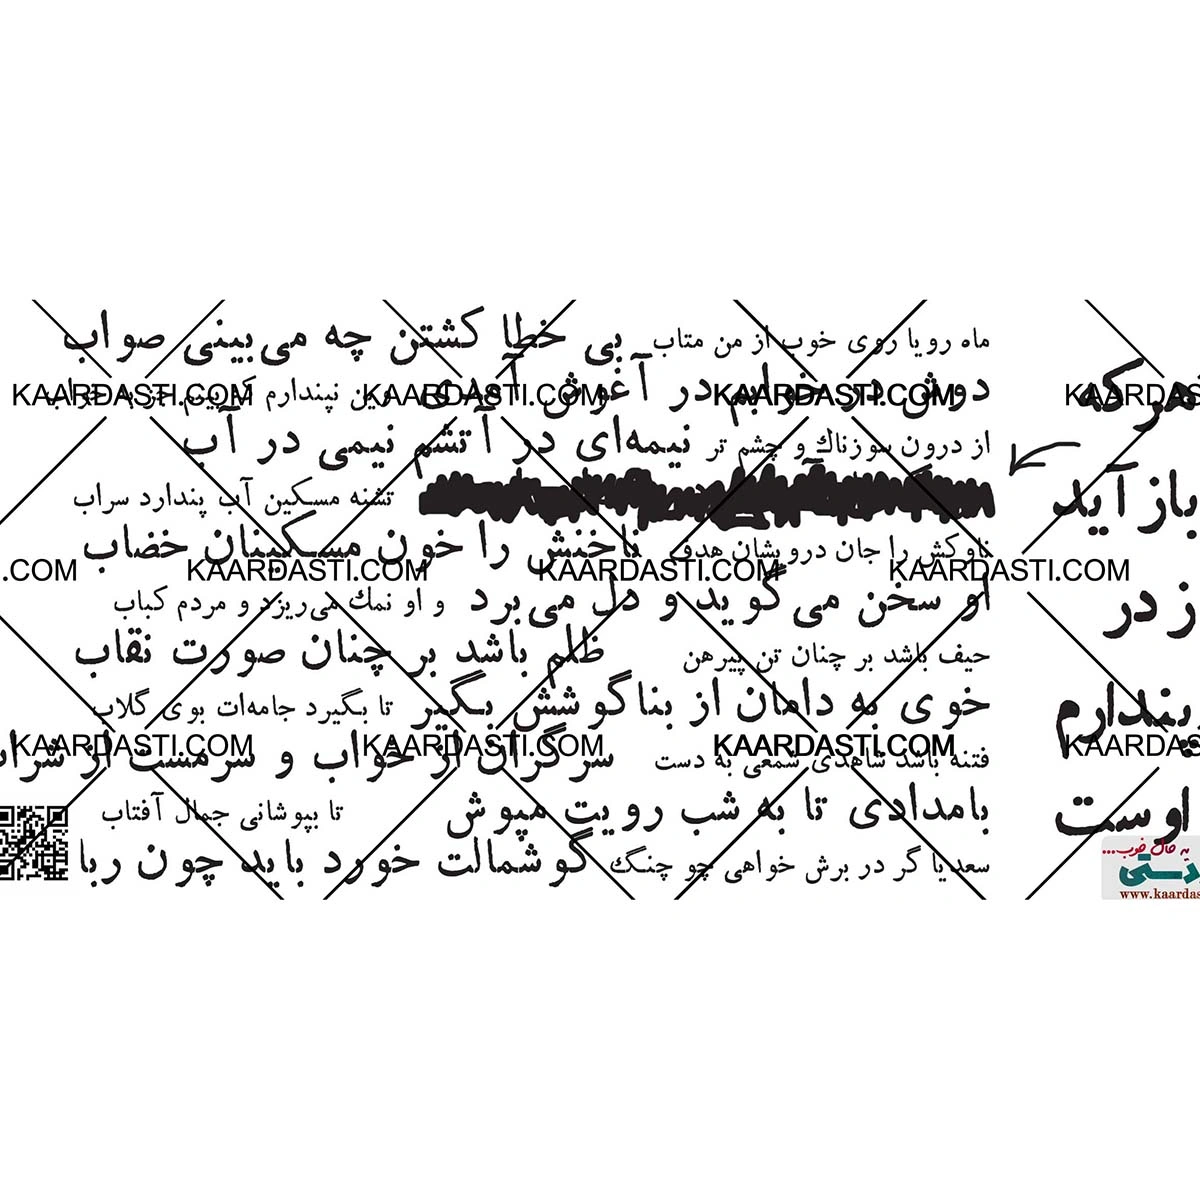 ماه رویا روی خوب از من متاب بی خطا کشتن چه می‌بینی صواب
دوش در خوابم در آغوش آمدی وین نپندارم که بینم جز به خواب
از درون سوزناك و چشم تر نیمه‌ای در آتشم نیمی در آب
تشنه مسکین آب پندارد سراب
ناوکش را جان درویشان هدف ناخنش را خون مسکینان خضاب
او سخن می‌گوید و دل می‌برد و او نمك می‌ریزد و مردم کباب
حیف باشد بر چنان تن پیرهن ظلم باشد بر چنان صورت نقاب
خوی به دامان از بناگوشش بگیر تا بگیرد جامه‌ات بوی گلاب
فتنه باشد شاهدی شمعی به دست سرگران از خواب و سرمست از شراب
بامدادی تا به شب رویت مپوش تا بپوشانی جمال آفتاب
سعدیا گر در برش خواهی چو چنگ گوشمالت خورد باید چون ربا
هر که
بازآید
ز در
پندارم
اوست
به حال خوب...
دستی
www.kaardas
KAARDASTI.COM KAARDASTI.COM KAARDASTI.COM KAARDAS
.COM KAARDASTI.COM KAARDASTI.COM KAARDASTI.COM
KAARDASTI.COM KAARDASTI.COM KAARDASTI.COM KAARDAS